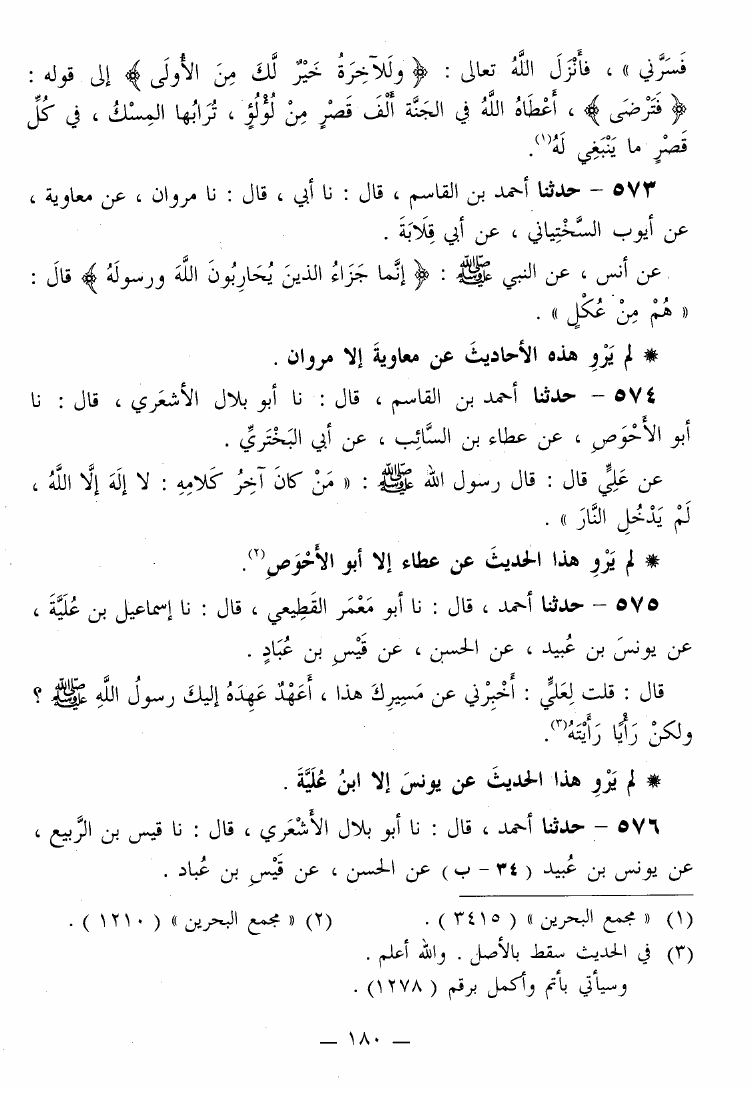 فَسَرَّني » ، فأَنْزَلَ اللَّهُ تعالى : ﴿ ولَلآخِرَةُ خَيْرٌ لَّكَ مِنَ الأُولَى ﴾ إلى قوله :
﴿ فَتَرْضَى ﴾ ، أَعْطَاهُ اللَّهُ في الجَنَّة أَلْفَ قَصْرٍ مِنْ لُؤْلُؤٍ ، تُرَابُها المِسْكُ ، في كُلِّ
قَصْرٍ ما يَنْبَغِي لَهُ(١).
٥٧٣ – حدثنا أحمد بن القاسم ، قال : نا أبي ، قال : نا مروان ، عن معاوية ،
عن أيوب السَّخْتِياني ، عن أبي قِلَابَةَ .
عن أنس ، عن النبي ﷺ : ﴿ إنَّما جَزَاءُ الذينَ يُحَارِبُونَ اللَّهَ ورسولَهُ ﴾ قالَ :
« هُمْ مِنْ عُكْلٍ » .
* لم يَرْوِ هذه الأحاديثَ عن معاويةَ إلا مروان .
٥٧٤ – حدثنا أحمد بن القاسم ، قال : نا أبو بلال الأشعَري ، قال : نا
أبو الأَحْوَصِ ، عن عطاء بن السَّائِب ، عن أبي البَخْتَرِيِّ .
عن عَلِيٍّ قال : قال رسول الله ﷺ : « مَنْ كانَ آخِرُ كَلَامِهِ : لا إلَهَ إلَّا اللَّهُ ،
لَمْ يَدْخُلِ النَّارَ » .
* لم يَرْوِ هذا الحديثَ عن عطاء إلا أبو الأَحْوَصِ(٢).
٥٧٥ – حدثنا أحمد ، قال : نا أبو مَعْمَر القَطِيعي ، قال : نا إسماعيل بن عُلَيَّةَ ،
عن يونسَ بن عُبيد ، عن الحسن ، عن قَيْسِ بن عُبَادٍ .
قال : قلت لِعَليٍّ : أَخْبِرْني عن مَسِيرِكَ هذا ، أَعَهْدٌ عَهِدَهُ إليكَ رسولُ اللَّهِ ﷺ ؟
ولكنْ رَأْيًا رَأَيْتَهُ(٣).
* لم يَرْوِ هذا الحديثَ عن يونسَ إلا ابنُ عُلَيَّةَ .
٥٧٦ – حدثنا أحمد ، قال : نا أبو بلال الأَشْعَري ، قال : نا قيس بن الرَّبيع ،
عن يونس بن عُبيد ( ٣٤ – ب ) عن الحسن ، عن قَيْسِ بن عُباد .
(١) « مجمع البحرين » ( ٣٤١٥ ) . (٢) « مجمع البحرين » ( ١٢١٠ ) .
(٣) في الحديث سقط بالأصل . والله أعلم .
وسيأتي بأتم وأكمل برقم ( ١٢٧٨) .
— ١٨٠ —